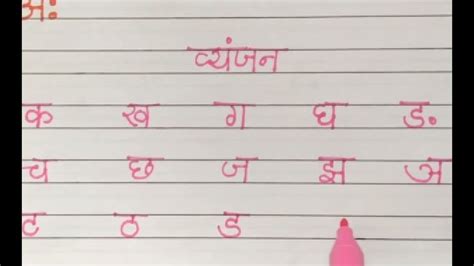 अः
व्यंजन
क ख ग घ ङ
च छ ज झ अ
ट ठ ड